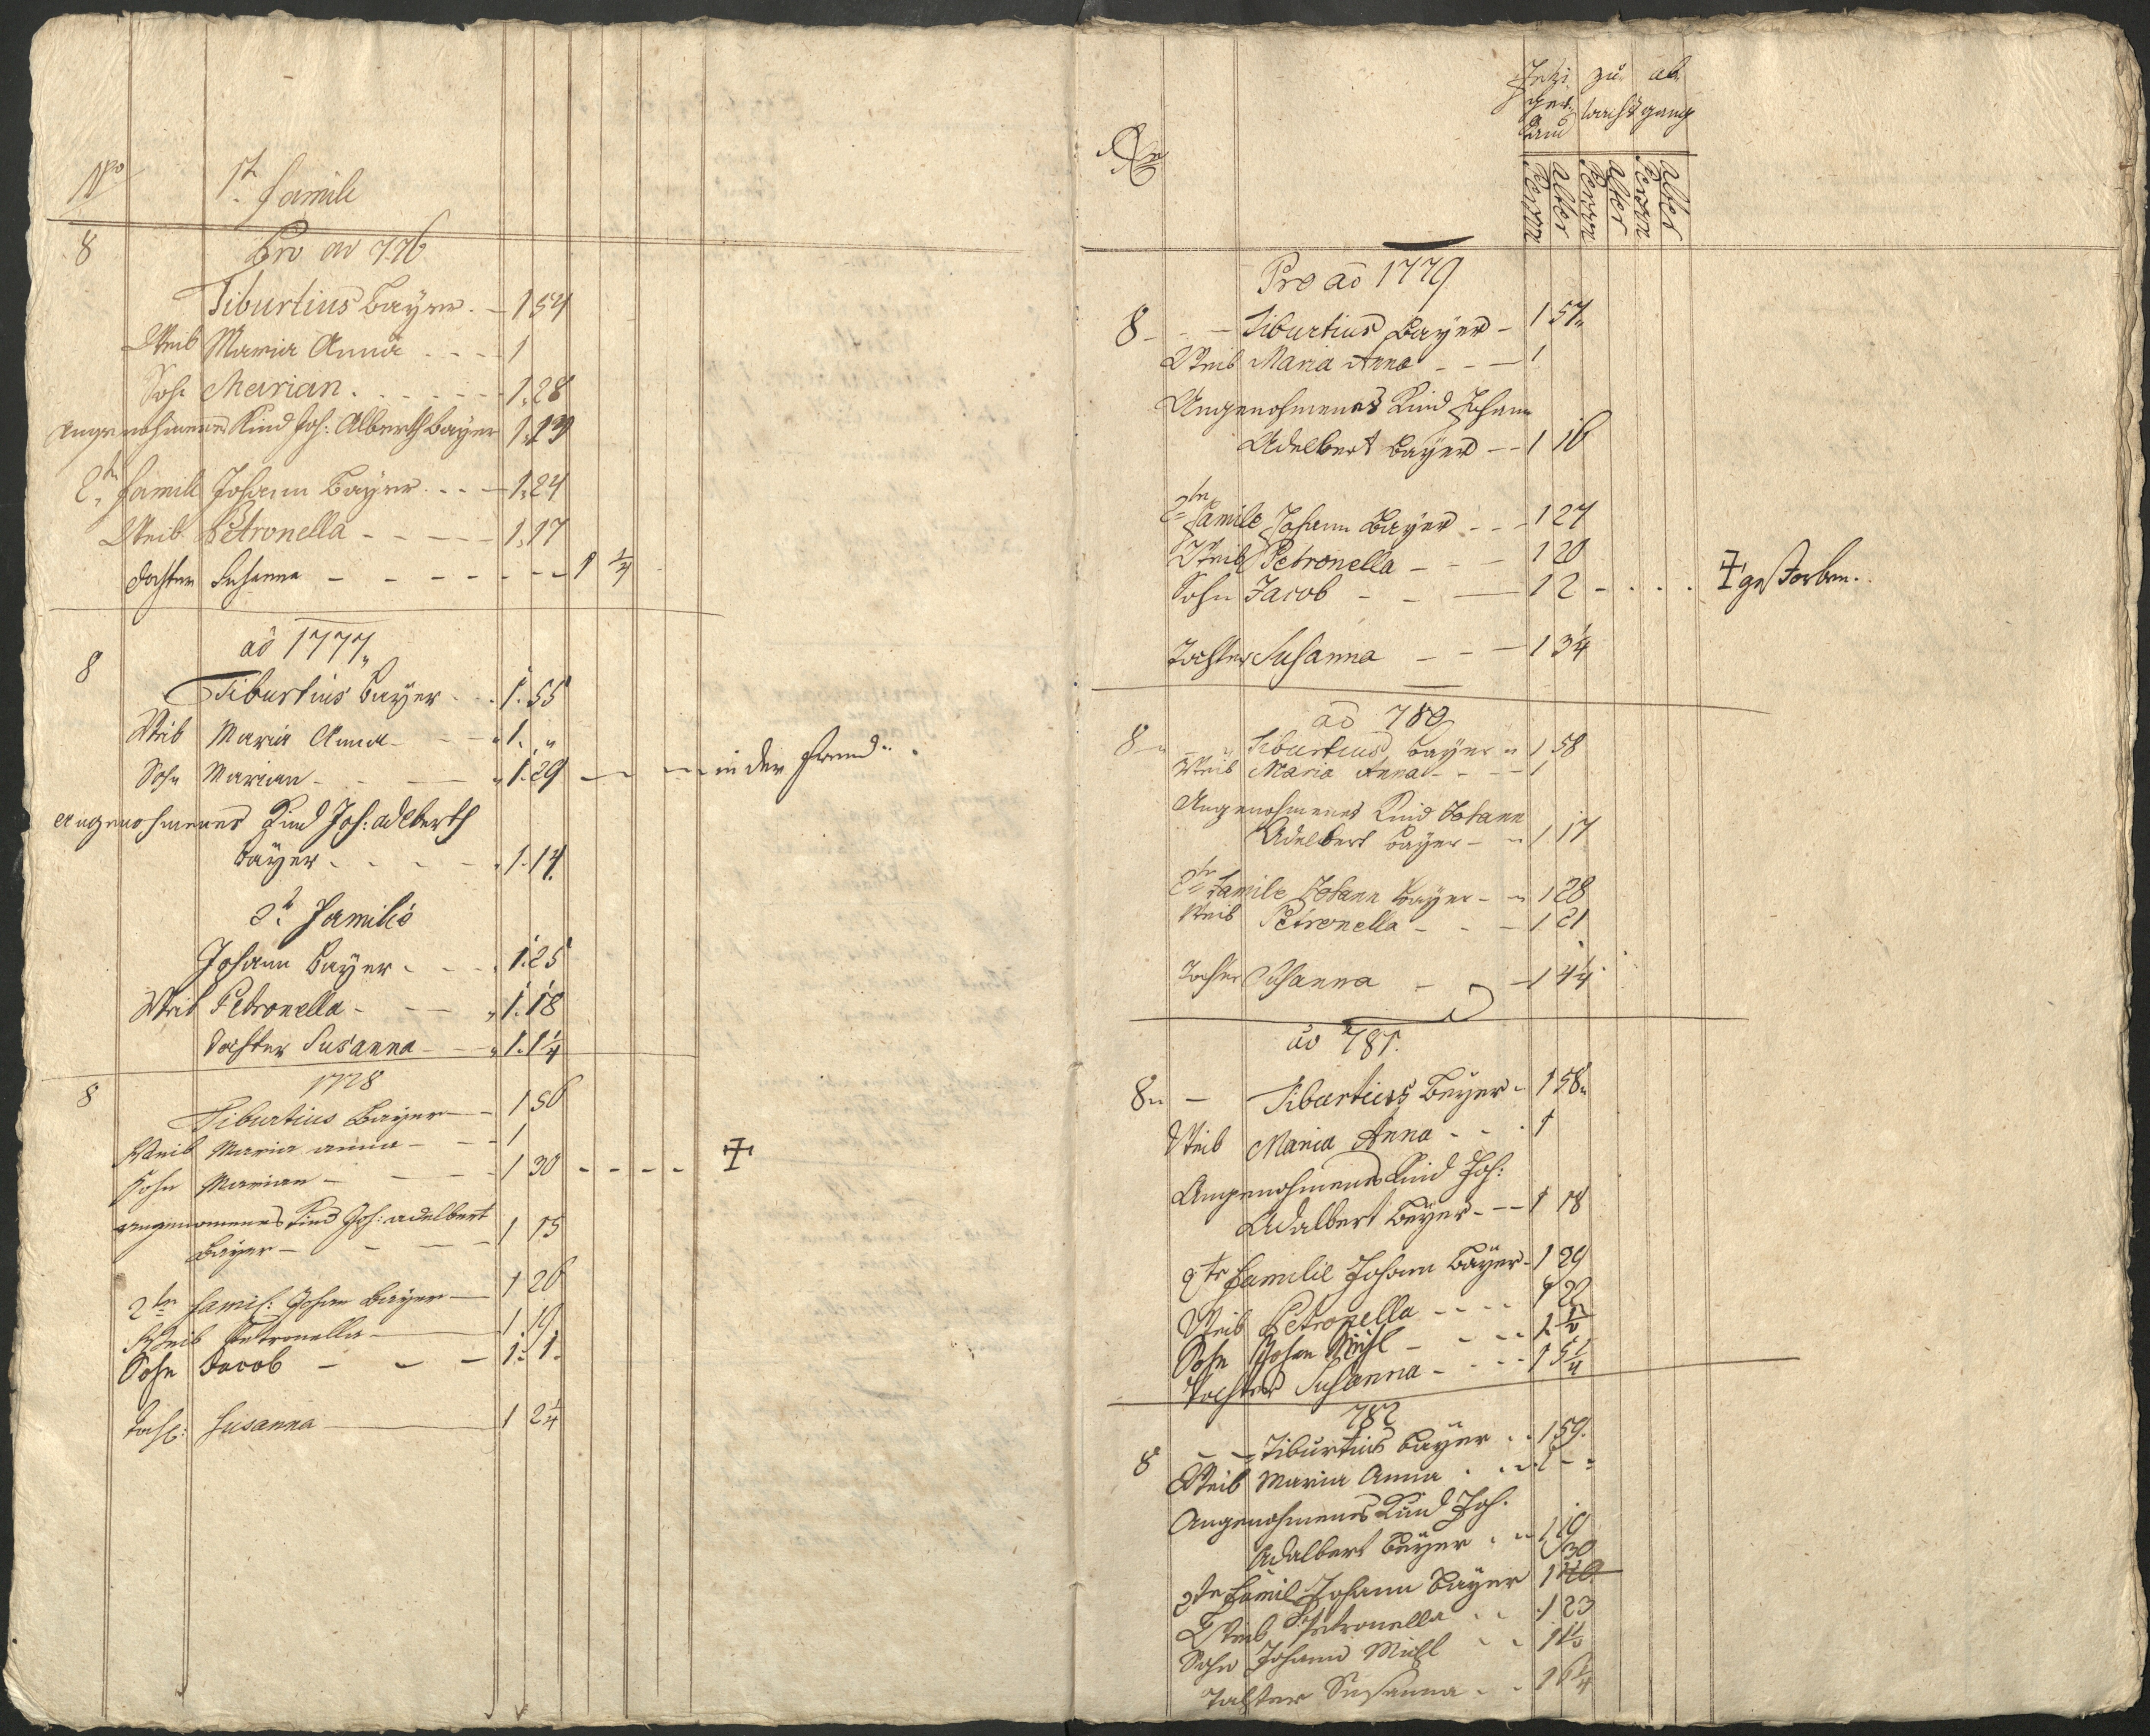 No 1te Famile
8 Pro ao 776
Tiburtius Bayer. – 1 54
Weib Maria Anna . - - - 1
Sohn Marian . . . . - - - 1. 28
Angenohmenes Kind Joh: Alberth Bayer 1. 13
2te Famill Johann Bayer . . . — 1. 24
Weib Petronella - - - - - 1. 17
Tochter Susanna - - - - - - - 1 1/4
8 aõ 1777
Tiburtius Bayer . . 1. 55
Weib Maria Anna - - - 1. "
Sohn Marian - - - 1. 29 — in der Fremd.
Angenohmenes Kind Joh: Adlberth
Bayer . . . . . 1. 14.
2te Familie
Johann Bayer . . . . 1. 25
Weib Petronella - - - 1. 18
Tochter Susanna - - 1. 1 1/4
8 1778
Tiburtius Bayer - - 1 56
Weib Maria Anna - - - 1
Sohn Marian - - - - 1 30 - - - -
Angenomenes Kind Joh: Adelbert
Bayer - - - - 1 15
2te Famil: Johan Bayer — 1 26
Weib Petronella — 1. 19
Sohn Jacob - - - 1. 1.
Toch: Susanna — 1 2 1/4
No
Jetzi zu ab
ger wachs gang
Stand
Person
Alter
Person
Alter
Person
Alter
Pro aõ 1779
8 - - - Tiburtius Bayer - 1 57
Weib Maria Anna - - - 1
Angenohmenes Kind Johann
Adelbert Bayer - - 1 16
2te Famile Johann Bayer - - - 1 27
Weib Petronella - - - 1 20
Sohn Jacob - - — 1 2 - . . . gestorben.
Tochter Susanna - - - 1 3 1/4
aõ 780
8 - Tiburtius Bayer 1 58
Weib Maria Anna - - - 1
Angenohmenes Kind Johann
Adelbert Bayer - - 1 17
2te Famile Johann Bayer - - 1 28
Weib Petronella - - - 1 21
Tochter Susanna - - 1 4 1/4
ao 781.
8 - Tiburtius Beyer - 1 58
Weib Maria Anna - - . 1
Angenohmenes Kind Joh:
Adalbert Beyer - - - 1 18
2te Familie Johann Bayer - 1 29
Weib Petronella - - - - 1 22
Sohn Johan Michl - - - - 1 1/2
Tochter Susanna - - - - 1 5 1/4
782
8 - - Tiburtius Bayer . . 1 59.
Weib Maria Anna . . . 1 - -
Angenohmenes Kind Joh.
Adalbert Beyer . . 1 19
30
2te Famil Johann Bayer 1
Weib Petronella . . . 1 23
Sohn Johann Michl . . 1 1 1/2
Tochter Susanna . . 1 6 1/4